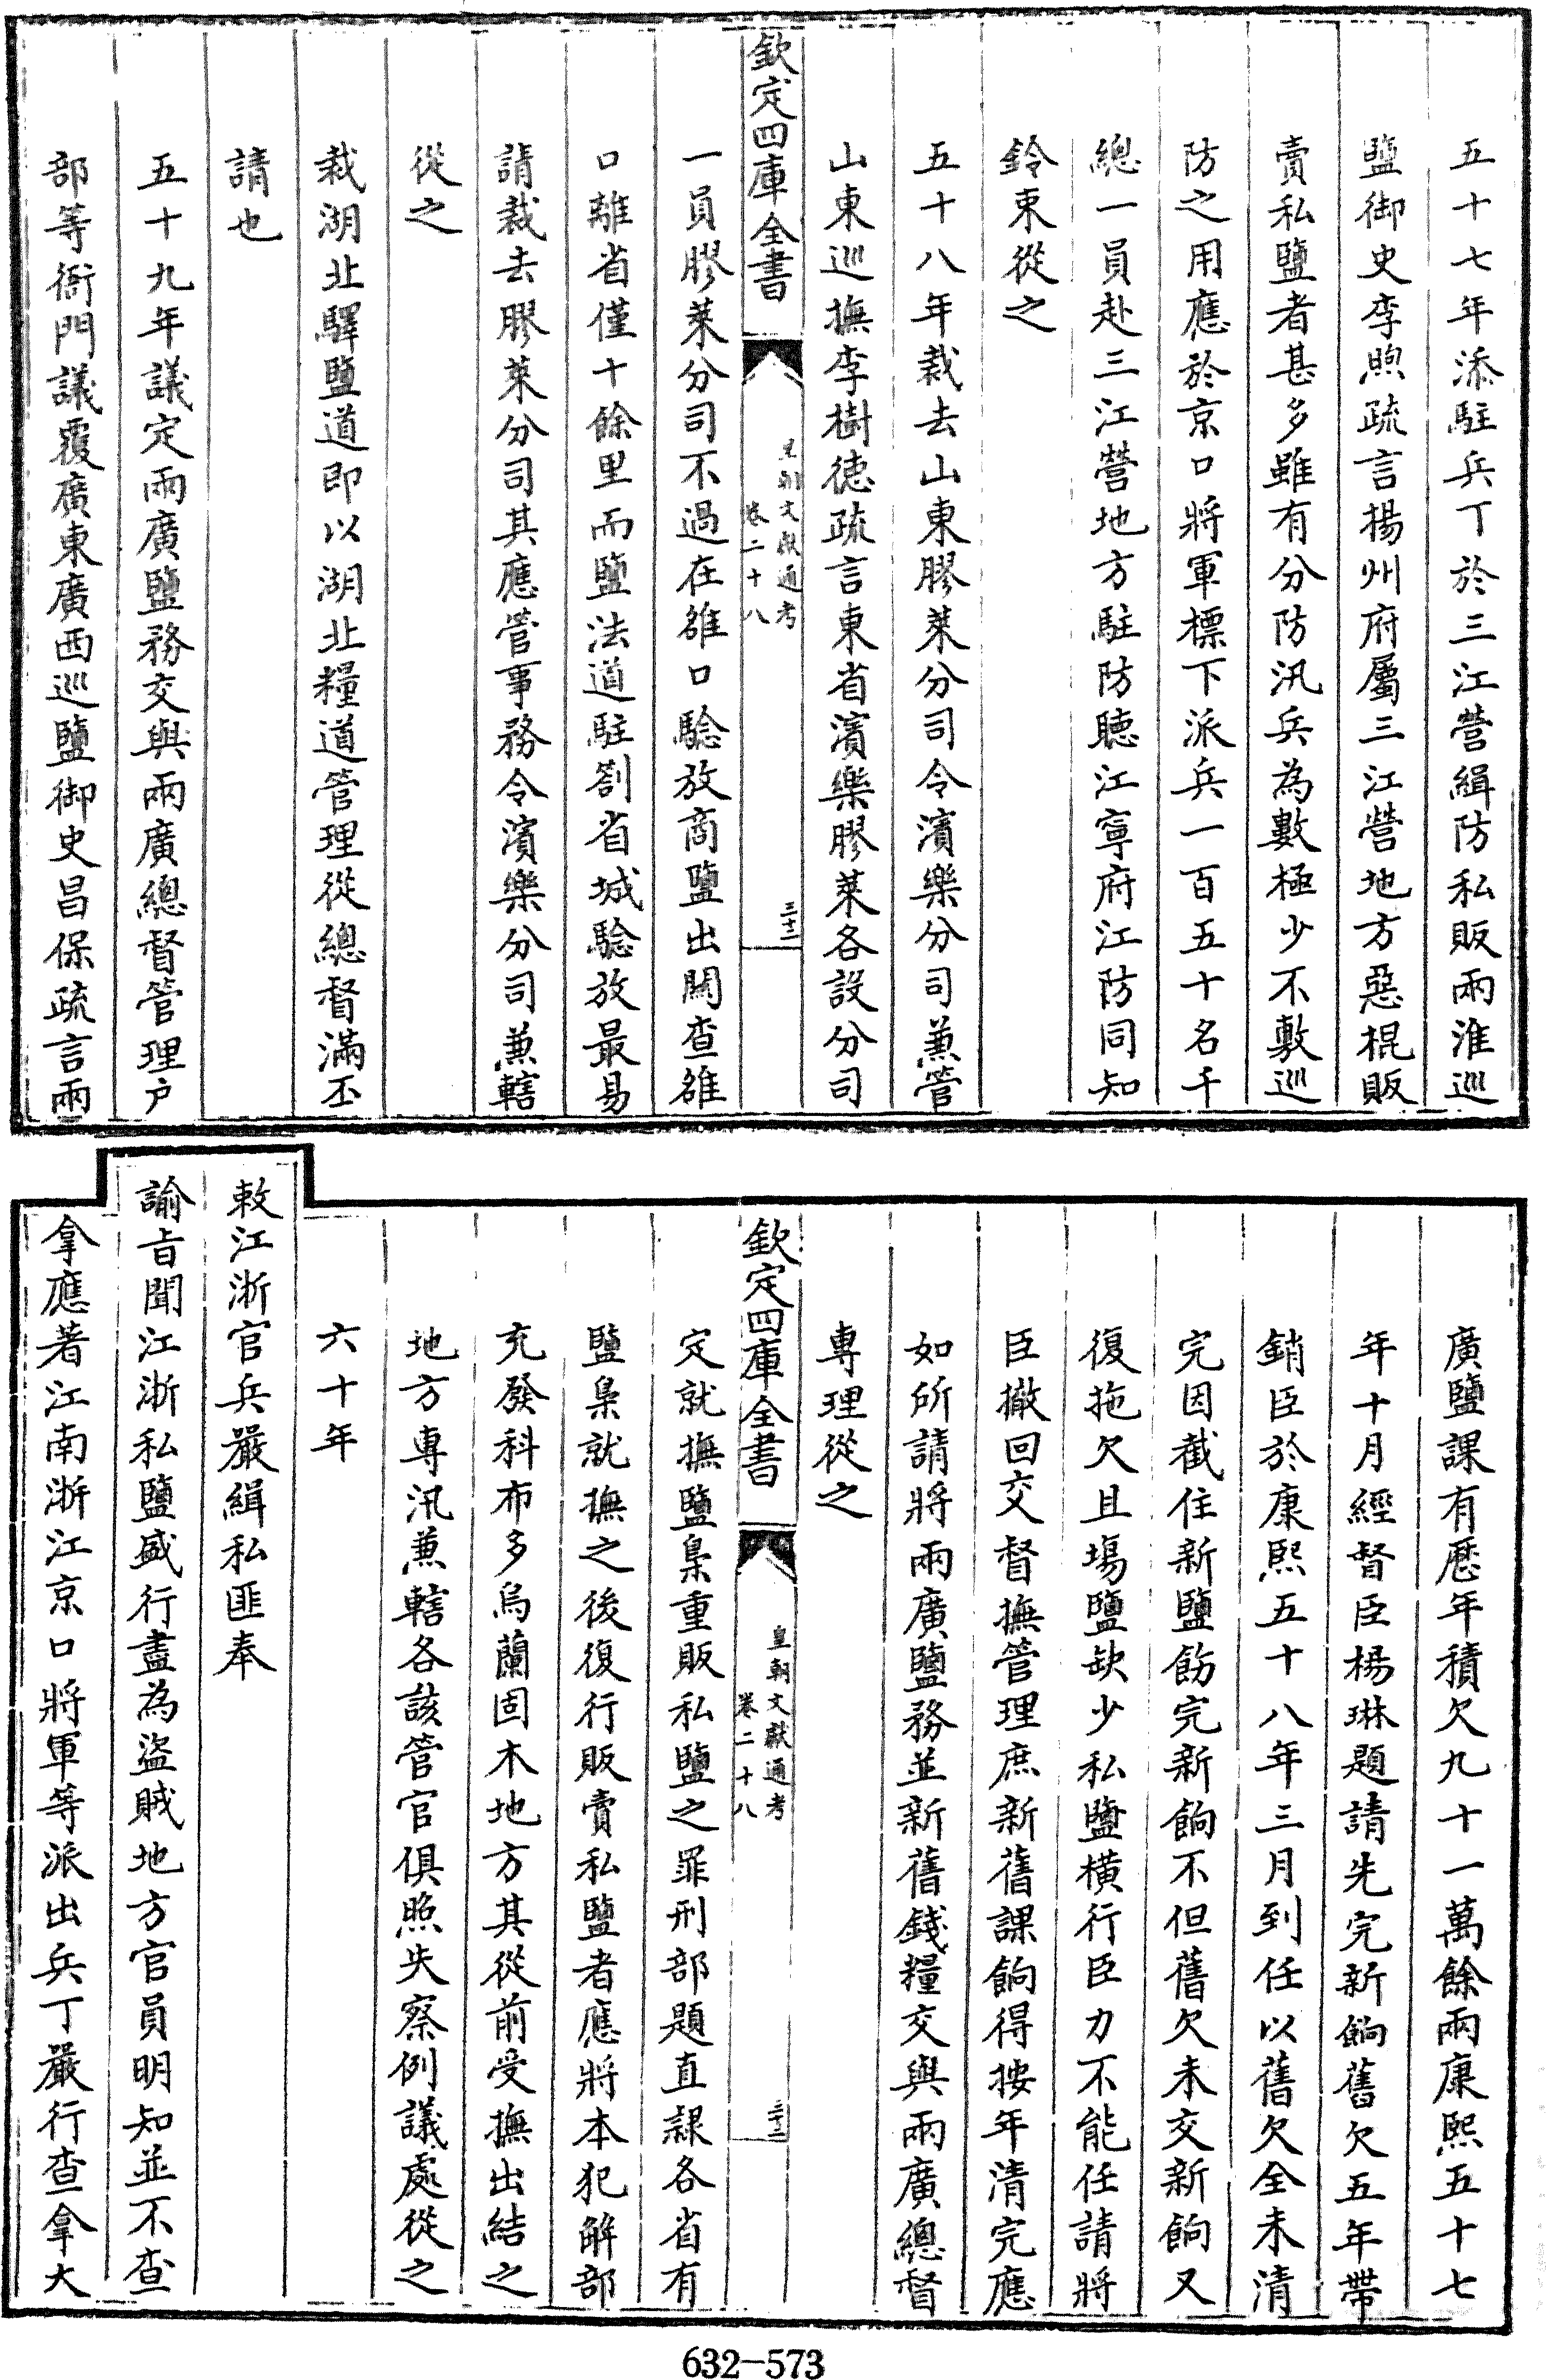 五十七年添駐兵丁於三江營緝防私販兩淮巡
鹽御史李煦疏言揚州府屬三江營地方惡棍販
賣私鹽者甚多雖有分防汛兵為數極少不敷巡
防之用應於京口將軍標下派兵一百五十名千
總一員赴三江營地方駐防聽江寧府江防同知
鈴束從之
五十八年裁去山東膠萊分司令濱樂分司兼管
山東巡撫李樹德疏言東省濱樂膠萊各設分司
欽定四庫全書
皇朝文獻通考
卷二十八
三十二
一員膠萊分司不過在雒口驗放商鹽出關查雒
口離省僅十餘里而鹽法道駐劄省城驗放最易
請裁去膠萊分司其應管事務令濱樂分司兼轄
從之
裁湖北驛鹽道即以湖北糧道管理從總督滿丕
請也
五十九年議定兩廣鹽務交與兩廣總督管理户
部等衙門議覆廣東廣西巡鹽御史昌保疏言兩
廣鹽課有歷年積欠九十一萬餘兩康熙五十七
年十月經督臣楊琳題請先完新餉舊欠五年帶
銷臣於康熙五十八年三月到任以舊欠全未清
完因截住新鹽飭完新餉不但舊欠未交新餉又
復拖欠且塲鹽缺少私鹽橫行臣力不能任請將
臣撤回交督撫管理庶新舊課餉得按年清完應
如所請將兩廣鹽務並新舊錢糧交與兩廣總督
專理從之
欽定四庫全書
皇朝文獻通考
卷二十八
三十三
定就撫鹽梟重販私鹽之罪刑部題直隸各省有
鹽梟就撫之後復行販賣私鹽者應將本犯解部
充發科布多烏蘭固木地方其從前受撫出結之
地方專汛兼轄各該管官俱照失察例議處從之
六十年
敕江浙官兵嚴緝私匪奉
諭旨聞江浙私鹽盛行盡為盜賊地方官員明知並不查
拿應著江南浙江京口將軍等派出兵丁嚴行查拿大
632-573